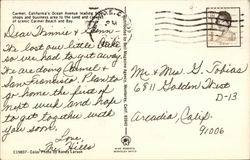 Carmel, California's Ocean Avenue leading
shops and business area to the sand and
of scenic Carmel Beach and Bay.
Dear Minnie & Glenn
We lost our little Duke
so we had to get away.
We are doing Carmel &
San Francisco. Plan to
go home the first of
next week and hope
to get together with
you soon.
Love,
Mr. & Mrs. G. Tobias
6811 Golden West
D-13
Arcadia, Calif.
91006
Color Photo by